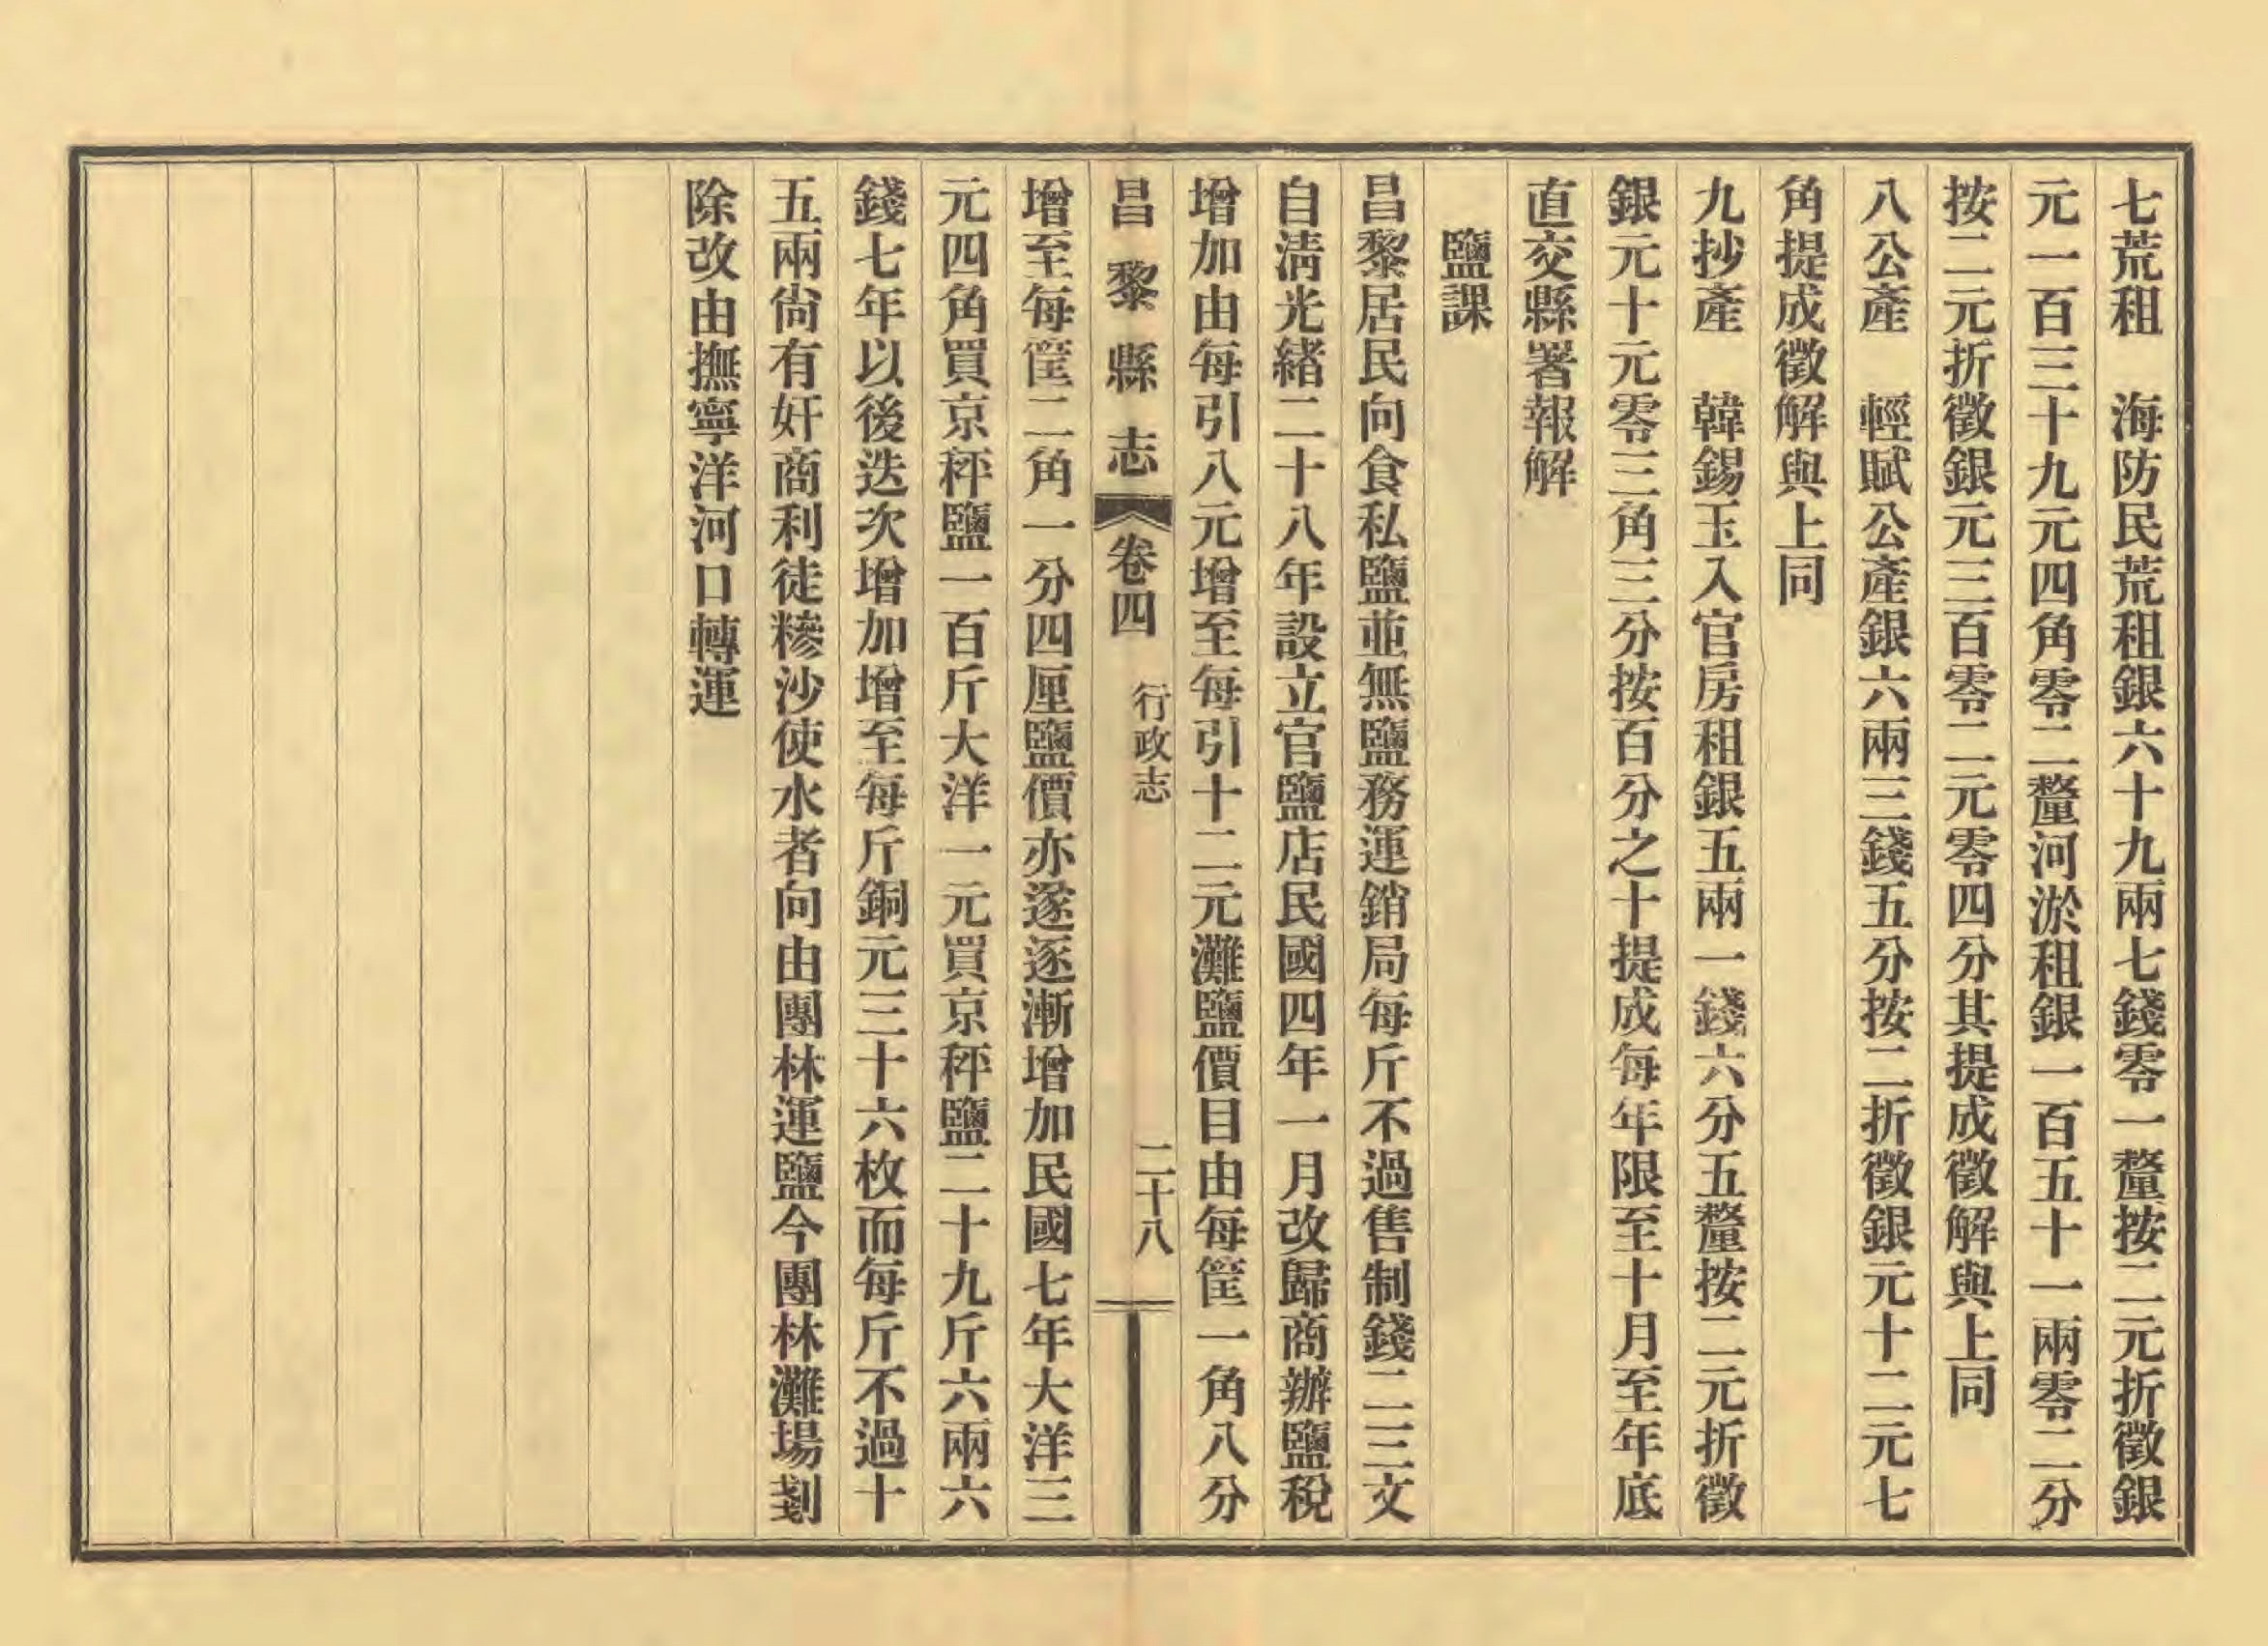 七荒租　海防民荒租銀六十九兩七錢零一釐按二元折徵銀
元一百三十九元四角零二釐河淤租銀一百五十一兩零二分
按二元折徵銀元三百零二元零四分其提成徵解與上同
八公產　輕賦公產銀六兩三錢五分按二折徵銀元十二元七
角提成徵解與上同
九抄產　韓錫玉入官房租銀五兩一錢六分五釐按二元折徵
銀元十元零三角三分按百分之十提成每年限至十月至年底
直交縣署報解
鹽課
昌黎居民向食私鹽並無鹽務運銷局每斤不過售制錢二三文
自清光緒二十八年設立官鹽店民國四年一月改歸商辦鹽稅
增加由每引八元增至每引十二元灘鹽價目由每筐一角八分
昌黎縣志　卷四　行政志　二十八
增至每筐二角一分四厘鹽價亦遂逐漸增加民國七年大洋三
元四角買京秤鹽一百斤大洋一元買京秤鹽二十九斤六兩六
錢七年以後迭次增加增至每斤銅元三十六枚而每斤不過十
五兩尙有奸商利徒糝沙使水者向由團林運鹽今團林灘場剗
除改由撫寧洋河口轉運